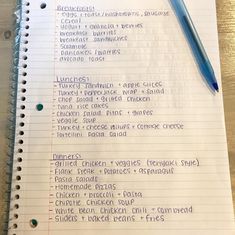 Breakfasts:
- eggs + toast/hashbrowns, sausage
- cereal
- yogurt + granola + berries
- breakfast burritos
- breakfast sandwiches
- scramble
- pancakes/waffles
- avocado toast
Lunches:
- Turkey sandwich + apple slices
- Turkey + pepperjack wrap + salad
- chop salad + grilled chicken
- tuna rice cakes
- chicken salad pitas + grapes
- veggie soup
- Turkey + cheese + cottage cheese
- Tortellini pasta salad
Dinners:
- grilled chicken + veggies (teriyaki style)
- Flank steak + potatoes + asparagus
- Pasta salads
- Homemade pizzas
- Chicken + broccoli + pasta
- Chipotle chicken soup
- White bean chicken chili + cornbread
- Sliders + baked beans + fries